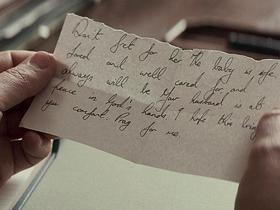 Don't fret for her the baby is safe,
loved and well cared for and
always will be. Your husband is at
peace in God's hands. I hope this brings
you comfort. Pray for me.